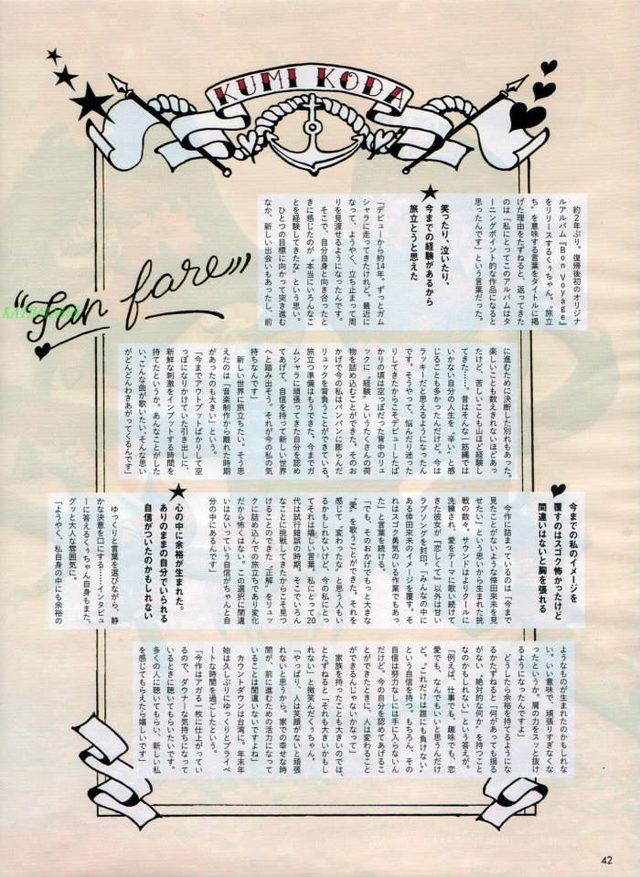 KUMI KODA
"Fan fare"
約2年ぶり。復帰後初のオリジナ
ルアルバム『Bon voyage』
をリリースするくぅちゃん。“旅立
ち”を意味する言葉をタイトルに掲
げた理由をたずねると、返ってきた
のは「私にとってこのアルバムはタ
ーニングポイント的な作品になると
思ったんです」という言葉だった。
笑ったり、泣いたり、
今までの経験があるから
旅立とうと思えた
「デビューから約14年。ずっとガム
シャラに走ってきたけれど、最近に
なって、ようやく、立ち止まって周
りを見渡せるようになったんです。
そこで、自分自身と向き合ったと
きに感じたのが、本当にいろんなこ
とを経験してきたな〜という思い。
ひとつの目標に向かって突き進む
なか、新しい出会いもあったし、前
に進むために決断した別れもあった。
楽しいことも数えきれないほどあっ
たけど、苦しいことも山ほど経験し
てきた……。昔はそんな一筋縄では
いかない自分の人生を“辛い”と感
じることも多かったんだけど、今は
ラッキーだと思えるようになったん
です。そうやって、悩んだり迷った
りしてきたからこそデビューしたば
かりの頃は空っぽだった背中のリュ
ックに“経験”というたくさんの荷
物を詰め込むことができた。そのお
かげで今の私はパンパンに膨らんだ
リュックを背負うことができている。
旅立つ準備はもうできた。今までガ
ムシャラに頑張ってきた自分を認め
てあげて、自信を持って新しい世界
へと踏み出そう。それが今の私の気
持ちなんです」
新しい世界に旅立ちたい。そう思
えたのは「音楽制作から離れた時期
があったのも大きい」という。
「今までアウトプットばかりして空
っぽになりかけていた引き出しに、
新鮮な刺激をインプットする時間を
持てたというか。あんなことがした
い、こんな曲が歌いたい、そんな思い
がどんどんわきあがってくるんです」
今までの私のイメージを
覆すのはスゴク怖かったけど
間違いはないと胸を張れる
今作に詰まっているのは「今まで
見たことがないような倖田來未を見
せたい」という思いから生まれた挑
戦の数々。サウンドはよりクールに
洗練され、愛をテーマに歌い続けて
きた彼女が『恋しくて』以外は甘い
ラブソングを封印。「みんなの中に
ある倖田來未のイメージを覆す。そ
れはスゴク勇気のいる作業でもあっ
た」と言葉を続ける。
「でも、そのおかげでもっと大きな
“愛”を歌うことができた。それを
感じて“変わったな”と思う人もい
るかもしれないけど、今の私にとっ
てそれは嬉しい言葉。私にとって20
代は試行錯誤の時期。そこでいろん
なことに挑戦してきたからこそ見つ
けることのできた“正解”をリュッ
クに詰め込んでの旅立ちであり変化
だから怖くはない。この選択に間違
いはないっていう自信がちゃんと自
分の中にあるんです」
心の中に余裕が生まれた。
ありのままの自分でいられる
自信がついたのかもしれない
ゆっくりと言葉を選びながら、静
かな決意を口にする……インタビュ
ーに答えるくぅちゃん自身もまた、
グッと大人な雰囲気に。
「ようやく、私自身の中にも余裕の
ようなものが生まれたのかもしれな
い。いい意味で、頑張りすぎなくな
ったというか。肩の力をスッと抜け
るようになったんですよ」
どうしたら余裕を持てるようにな
るかたずねると「何があっても揺る
がない“絶対的な何か”を持つこと
なのかもしれない」という答えが。
「例えば、仕事でも、趣味でも、恋
愛でも。なんでもいいと思うんだけ
ど“これだけは誰にも負けない”
という自信を持つ。もちろん、その
自信は努力なしには手に入らないん
だけど。今の自分を認めてあげるこ
とができたときに、人は変わること
ができるんじゃないかなって」
家族を持ったことも大きいのでは、
とたずねると「それも大きいかもし
れない」と微笑んだくぅちゃん。
「やっぱり、人は笑顔がないと頑張
れないと思うから。家での幸せな時
間が、前に進むための活力になって
いることは間違いないですよね」
カウントダウンは台湾に。年末年
始は久しぶりにゆっくりとプライベ
ートな時間を過ごしたという。
「今作はアガる一枚に仕上がってい
るので、ダウナーな気持ちになって
いるときに聴いてもらいたいです。
多くの人に聴いてもらい、新しい私
を感じてもらえたら嬉しいです」
42